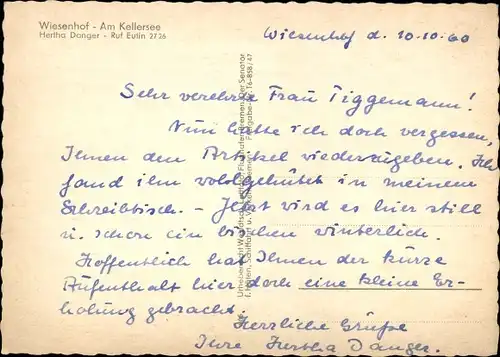 Wiesenhof - Am Kellersee
Hertha Danger - Ruf Eutin 2726
Wiesenhof d. 10.10.60
Sehr verehrte Frau Tiggemann!
Nun hatte ich doch vergessen,
Ihnen den Artikel wiederzugeben. Ich
fand ihn wohlgehütet in meinem
Schreibtisch. - Jetzt wird es hier still
u. schon ein bischen winterlich.
Hoffentlich hat Ihnen der kurze
Aufenthalt hier doch eine kleine Er-
holung gebracht.
Herzliche Grüße
Ihre Hertha Danger.